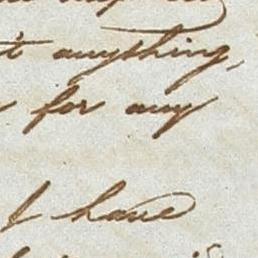 't anything,
for any
I have